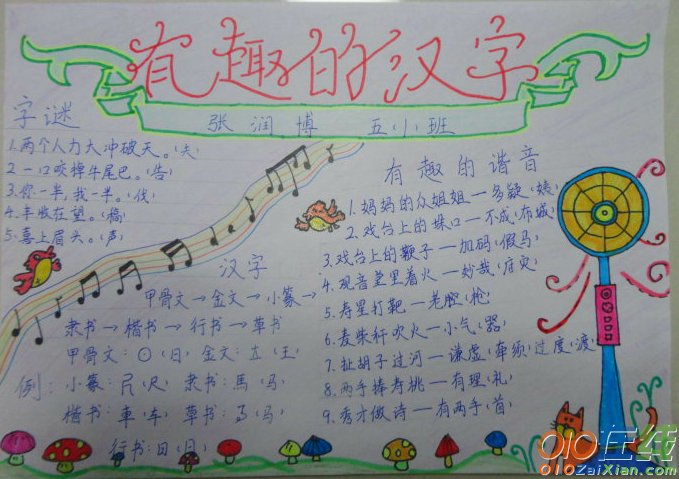 有趣的汉字
张润博 五小班
字谜
1.两个人力大冲破天。(夫)
2.一口咬掉牛尾巴。(告)
3.你一半,我一半。(伐)
4.丰收在望。(稿)
5.喜上眉头。(声)
汉字
甲骨文→金文→小篆→
隶书→楷书→行书→草书
甲骨文:⊙(日) 金文:立(王)
例:小篆:尺(尺) 隶书:馬(马)
楷书:車(车) 草书:(马)
行书:日(日)
有趣的谐音
1.妈妈的众姐姐—多疑(姨)
2.戏台上的垛口—不成(布城)
3.戏台上的鞭子—加码(假马)
4.观音堂里着火—妙哉(庙灾)
5.寿星打靶—老腔(枪)
6.麦柴秆吹火—小气(器)
7.扯胡子过河—谦虚(牵须)过度(渡)
8.两手捧寿桃—有理(礼)
9.秀才做诗—有两手(首)
010在线
010ZaiXian.com